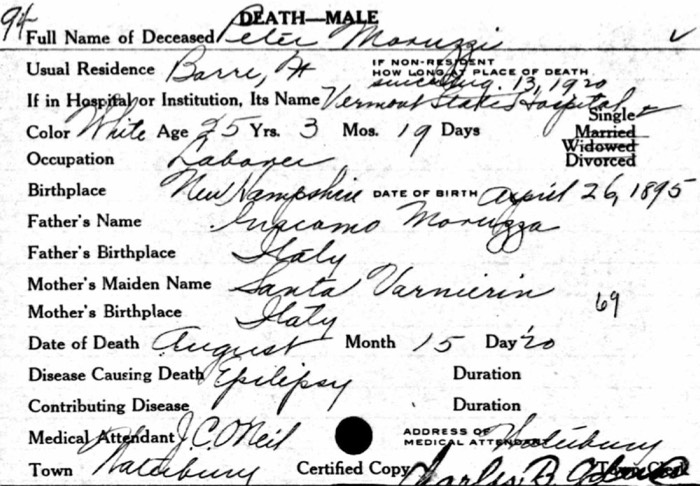 94 DEATH—MALE
Full Name of Deceased Peter Moruzzi
Usual Residence Barre, Vt IF NON-RESIDENT HOW LONG AT PLACE OF DEATH since Aug. 13, 1920
If in Hospital or Institution, Its Name Vermont State Hospital
Color White Age 25 Yrs. 3 Mos. 19 Days Single Married Widowed Divorced
Occupation Laborer
Birthplace New Hampshire DATE OF BIRTH April 26, 1895
Father's Name Giacomo Moruzza
Father's Birthplace Italy
Mother's Maiden Name Santa Varnierin
Mother's Birthplace Italy 69
Date of Death August Month 15 Day '20
Disease Causing Death Epilipsy Duration
Contributing Disease Duration
Medical Attendant J. C. O'Neil ADDRESS OF MEDICAL ATTENDANT Waterbury
Town Waterbury Certified Copy Charles B. Town Clerk